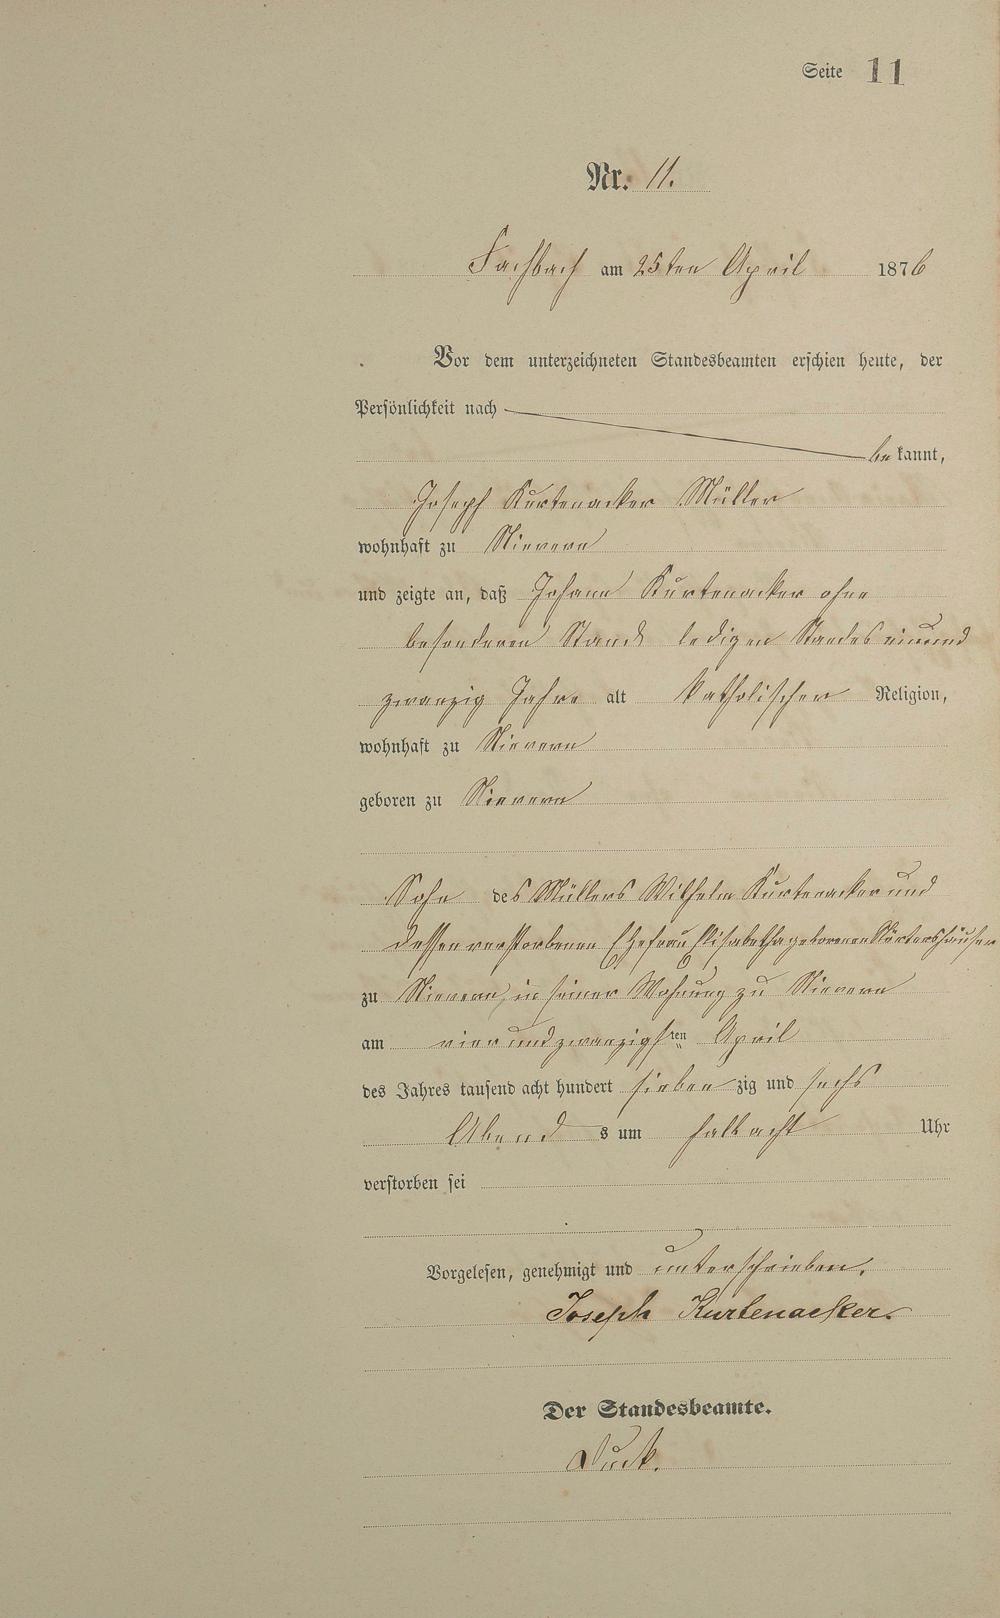 Seite 11
Nr. 11.
Fachbach am 25ten April 1876
Vor dem unterzeichneten Standesbeamten erschien heute, der
Persönlichkeit nach
bekannt,
Joseph Kurtenacker Müller
wohnhaft zu Nievern
und zeigte an, daß Johann Kurtenacker ohne
besonderen Stand ledigen Standes einund
zwanzig Jahre alt katholischer Religion,
wohnhaft zu Nievern
geboren zu Nievern
Sohn des Müllers Wilhelm Kurtenacker und
dessen verstorbenen Ehefrau Elisabetha geborenen
zu Nievern, in seiner Wohnung zu Nievern
am vierundzwanzigsten April
des Jahres tausend acht hundert siebenzig und sechs
Abends um halb acht Uhr
verstorben sei
Vorgelesen, genehmigt und unterschrieben.
Joseph Kurtenacker.
Der Standesbeamte.